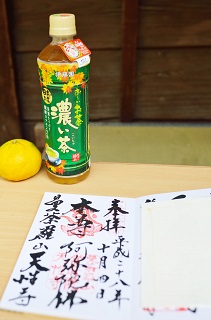 伊藤園
お〜いお茶
濃い茶
奉拝 平成二十八年
十月四日
本尊 阿弥陀佛
曼荼羅山 天性寺